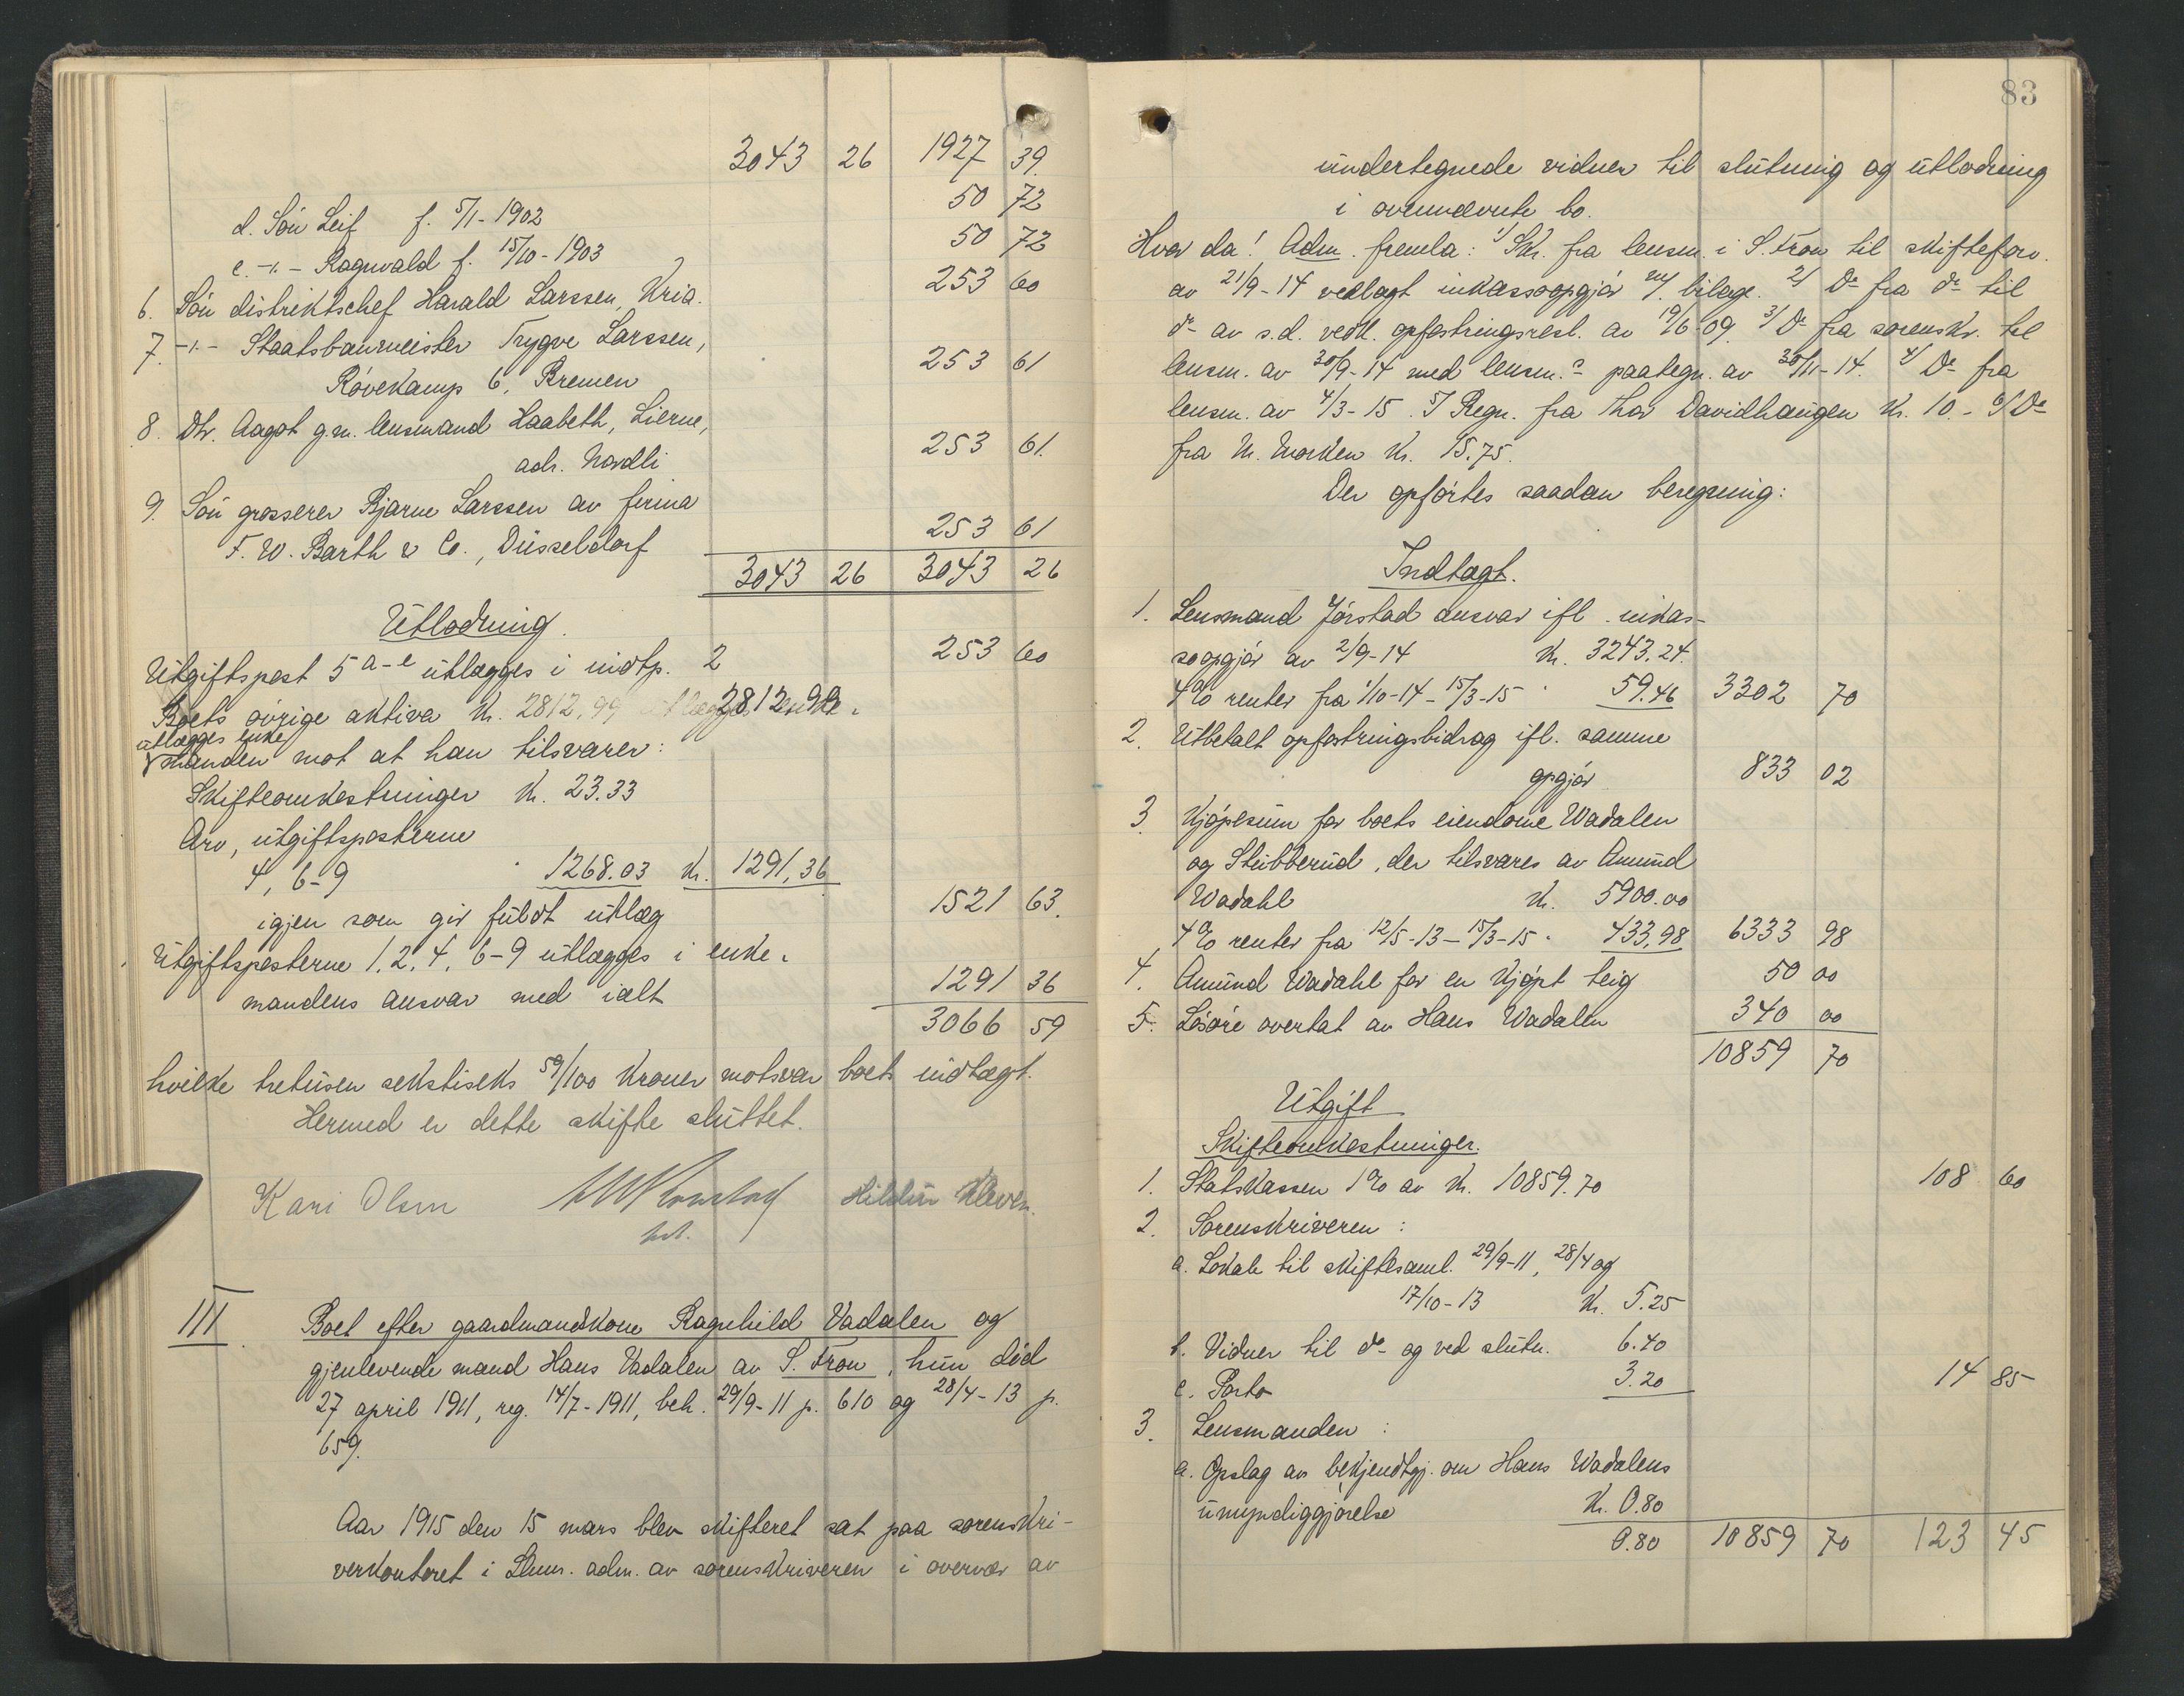 3043 26 1927 39
d. Sön Leif f. 5/1-1902 50 72
e. -"- Ragnvald f. 15/10-1903 50 72
6. Sön distriktschef Harald Larssen, Kria. 253 60
7. -"- Staatsbaumeister Trygve Larssen,
Rövekamp 6, Bremen 253 61
8. Dtr. Aagot g.m. lensmand Haabeth, Lierne,
adr. Nordli 253 61.
9. Sön grosserer Bjarne Larssen av firma
F. W. Barth & Co., Düsseldorf 253 61
3043 26 3043 26
Utlodning.
Utgiftspost 5 a-e utlægges i indtp. 2 253 60
Boets övrige aktiva Kr. 2812,99
utlægges enke
manden mot at han tilsvarer:
Skifteomkostninger Kr. 23.33
Arv, utgiftsposterne
4, 6-9 " 1268.03 Kr. 1291,36
igjen som gir fuldt utlæg 1521 63.
Utgiftsposterne 1, 2, 4, 6-9 utlægges i enke-
mandens ansvar med ialt 1291 36
3066 59
hvilke tretusen sekstiseks 59/100 Kroner motsvar boets indtægt.
Hermed er dette skifte sluttet.
Kari Olsen Kleven.
III. Boet efter gaardmandskone Ragnhild Vadalen og
gjenlevende mand Hans Vadalen av S. Fron, hun död
27 april 1911, reg. 14/7-1911, beh. 29/9-11 p. 610 og 28/4-13 p.
659.
Aar 1915 den 15 mars blev skifteret sat paa sorenskri-
verkontoret i adm. av sorenskriveren i overvær av
83
undertegnede vidner til slutning og utlodning
i ovennævnte bo.
Hvor da! Adm. fremla: 1/ Skr. fra lensm. i S. Fron til skifteforv.
av 21/9-14 vedlagt inkassoopgjör m/. bilage. 2/ Do fra do til
do av s.d. vedl. opfostringsresl. av 19/6-09. 3/ Do fra sorenskr. til
lensm. av 30/9-14 med lensm.s paategn. av 30/11-14. 4/ Do fra
lensm. av 4/3-15. 5/ Regn. fra Thor Davidhaugen Kr. 10.- 6/ Do
fra Kr. 15.75.
Der opförtes saadan beregning:
Indtægt.
1. Lensmand Jörstad ansvar ifl. inkas-
soopgjör av 2/9-14 Kr. 3243.24.
4% renter fra 1/10-14 - 15/3-15 " 59.46 3302 70
2. Utbetalt opfostringsbidrag ifl. samme
opgjör 833 02
3. Kjöpesum for boets eiendome Wadalen
og Stubberud, der tilsvares av Amund
Wadahl Kr. 5900.00
4% renter fra 12/5-13 - 15/3-15 " 433,98 6333 98
4. Amund Wadahl for en kjöpt teig 50 00
5. Lösöre overtat av Hans Wadalen 340 00
10859 70
Utgift
Skifteomkostninger.
1. Statskassen 1% av Kr. 10859.70 108 60
2. Sorenskriveren:
a. Lokale til skiftesaml. 29/9-11, 28/4 og
17/10-13 Kr. 5.25
b. Vidner til do og ved slutn. 6.40
c. Porto 3.20 14 85
3. Lensmanden:
a. Opslag av bekjendtgj. om Hans Wadalens
umyndiggjörelse Kr. 0.80
0.80 10859 70 123 45